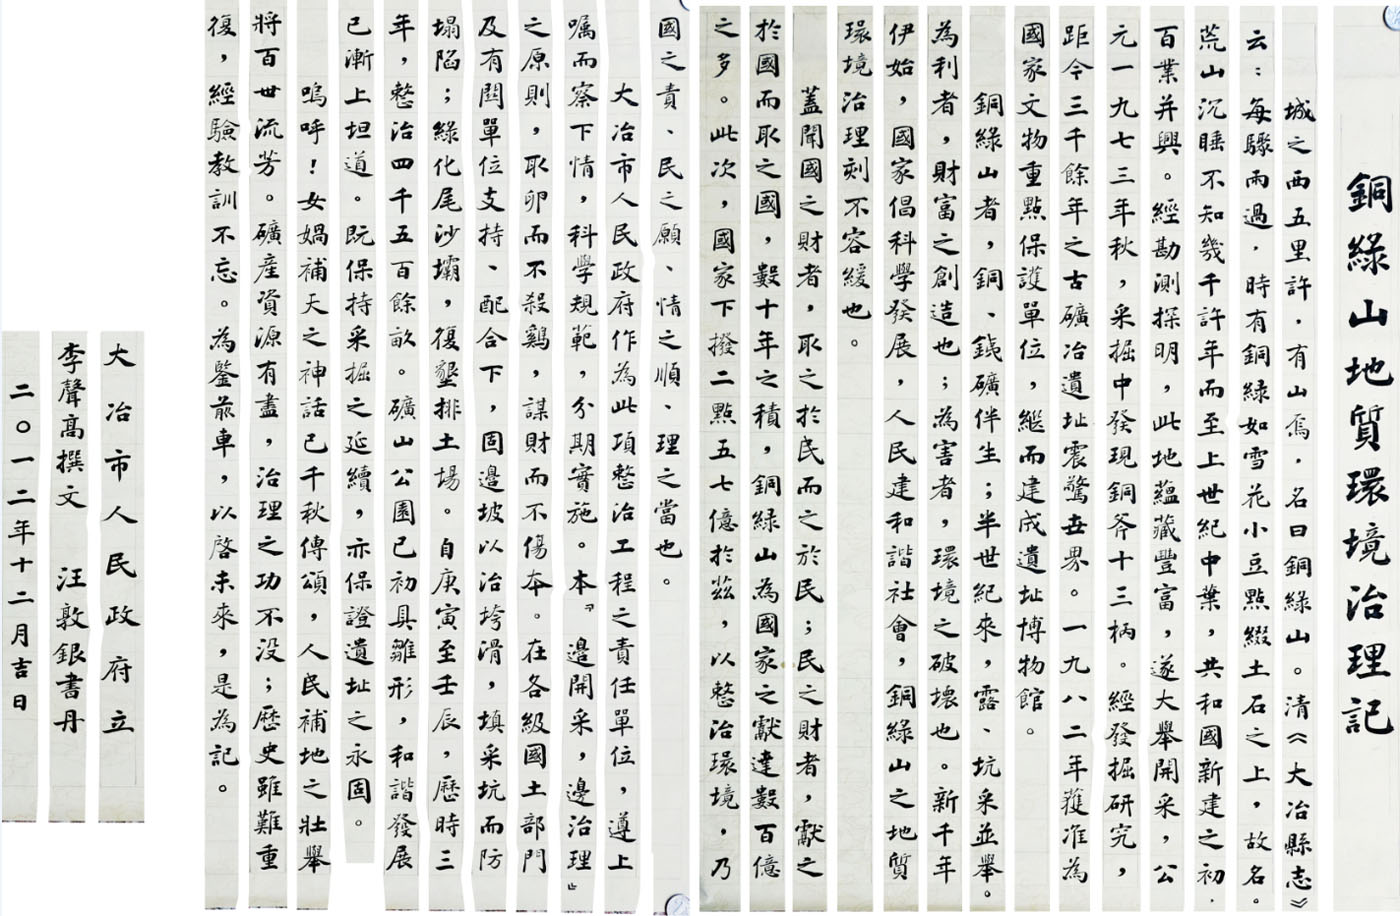 銅綠山地質環境治理記
城之西五里許，有山焉，名曰銅綠山。清《大冶縣志》
云：每驟雨過，時有銅綠如雪花小豆點綴土石之上，故名。
荒山沉睡不知幾千許年而至上世紀中葉，共和國新建之初，
百業并興。經勘測探明，此地蘊藏豐富，遂大舉開采，公
元一九七三年秋，采掘中發現銅斧十三柄。經發掘研究，
距今三千餘年之古礦冶遺址震驚世界。一九八二年獲准為
國家文物重點保護單位，繼而建成遺址博物館。
銅綠山者，銅、鐵礦伴生；半世紀來，露、坑采並舉。
為利者，財富之創造也；為害者，環境之破壞也。新千年
伊始，國家倡科學發展，人民建和諧社會，銅綠山之地質
環境治理刻不容緩也。
蓋聞國之財者，取之於民而之於民；民之財者，獻之
於國而取之國，數十年之積，銅綠山為國家之獻達數百億
之多。此次，國家下撥二點五七億於茲，以整治環境，乃
國之責、民之願、情之順、理之當也。
大冶市人民政府作為此項整治工程之責任單位，遵上
囑而察下情，科學規範，分期實施。本『邊開采，邊治理』
之原則，取卵而不殺鷄，謀財而不傷本。在各級國土部門
及有關單位支持、配合下，固邊坡以治垮滑，填采坑而防
塌陷；綠化尾沙壩，復墾排土場。自庚寅至壬辰，歷時三
年，整治四千五百餘畝。礦山公園已初具雛形，和諧發展
已漸上坦道。既保持采掘之延續，亦保證遺址之永固。
嗚呼！女媧補天之神話已千秋傳頌，人民補地之壯舉
將百世流芳。礦產資源有盡，治理之功不沒；歷史雖難重
復，經驗教訓不忘。為鑒前車，以啓未來，是為記。
大冶市人民政府立
李聲高撰文　汪敦銀書丹
二〇一二年十二月吉日